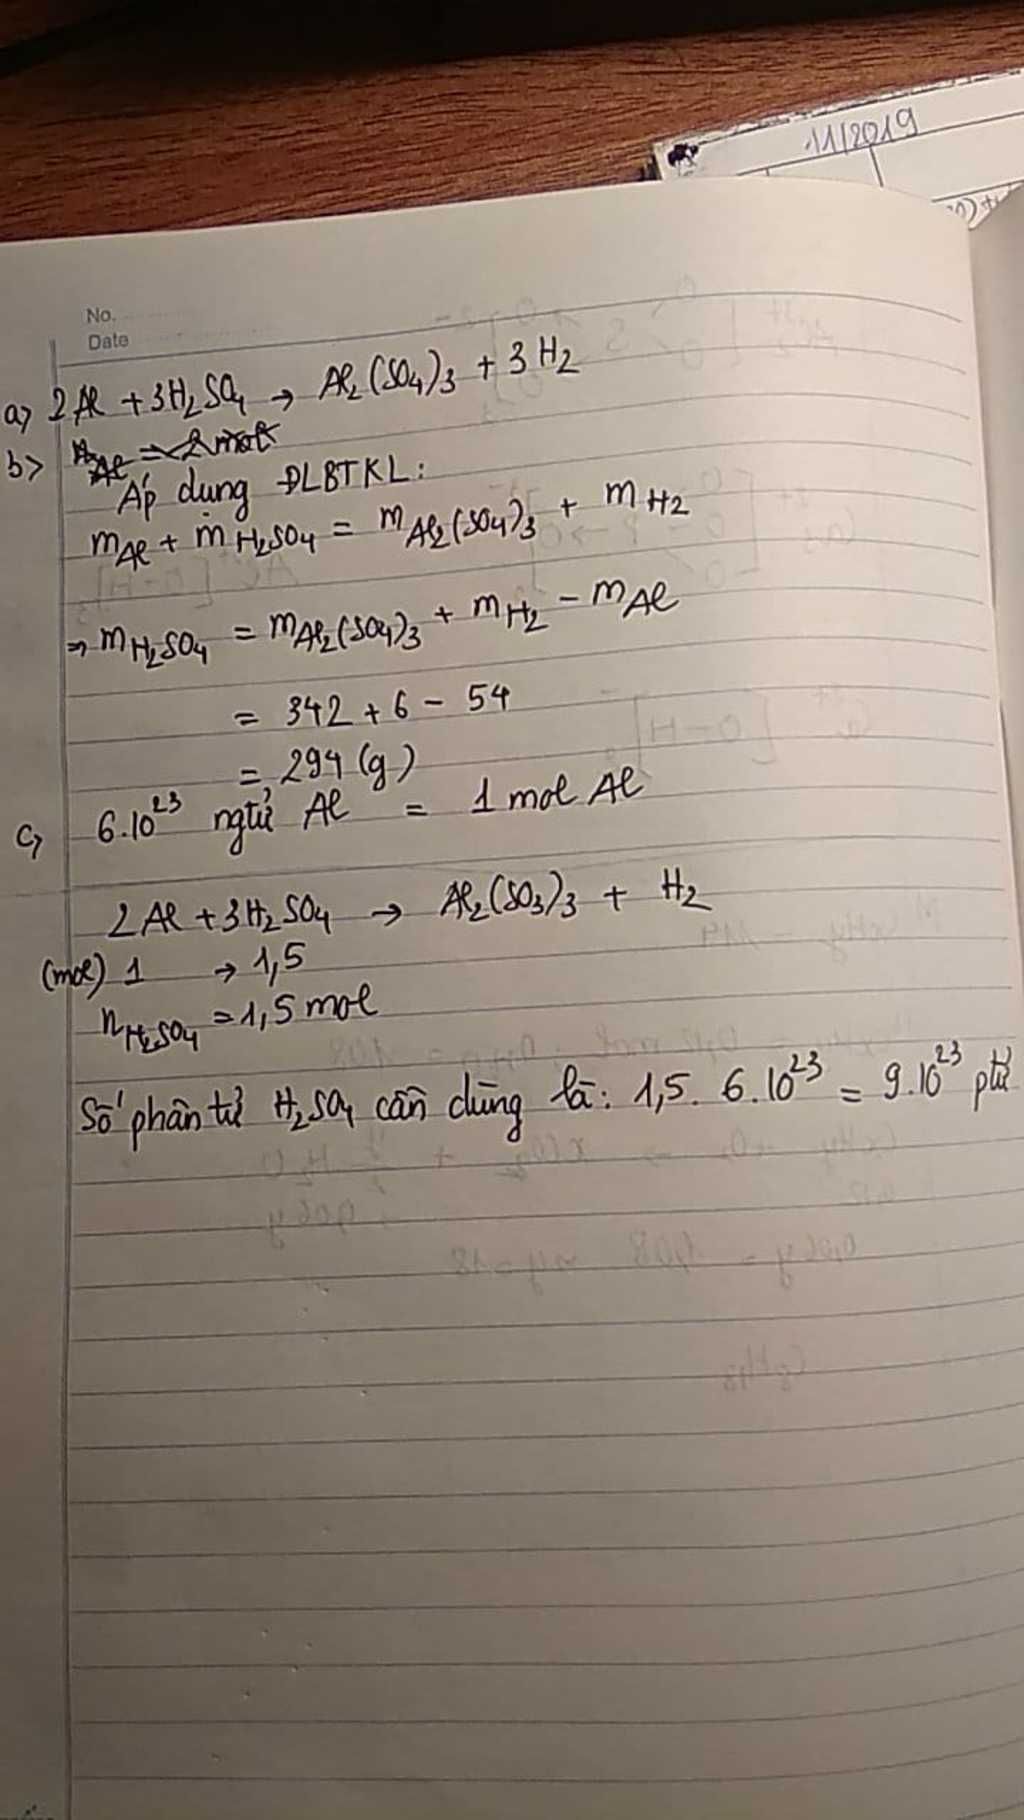 11/2019
No.
Date
a) 2Al + 3H₂SO₄ → Al₂(SO₄)₃ + 3H₂
b) nAl = 2 mol
Áp dụng ĐLBTKL:
mAl + mH₂SO₄ = mAl₂(SO₄)₃ + mH₂
⇒ mH₂SO₄ = mAl₂(SO₄)₃ + mH₂ - mAl
= 342 + 6 - 54
= 294 (g)
c) 6.10²³ ngtử Al = 1 mol Al
2Al + 3H₂SO₄ → Al₂(SO₃)₃ + H₂
(mol) 1 → 1,5
nH₂SO₄ = 1,5 mol
Số phân tử H₂SO₄ cần dùng là: 1,5. 6.10²³ = 9.10²³ ptử